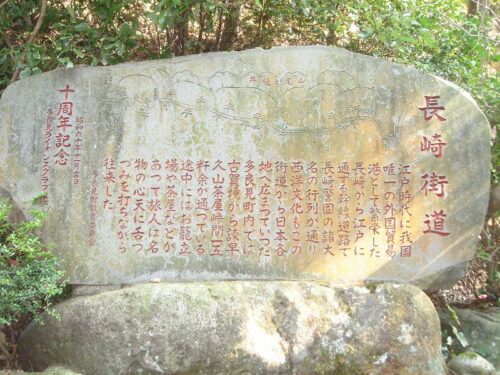 長崎街道
江戸時代に我国
唯一の外国貿易
港として繁栄した
長崎から江戸に
通ずる幹線道路で
長崎警固の諸大
名の行列が通り
西洋文化もこの
街道から日本各
地に広まっていった
多良見町内では
古賀領から諫早
久山茶屋峠間一五
粁余が通っている
途中にはお籠立
場や茶屋などが
あって旅人は名
物の心天に舌つ
つみを打ちながら
往来した
十周年記念
多良見ライオンズクラブ